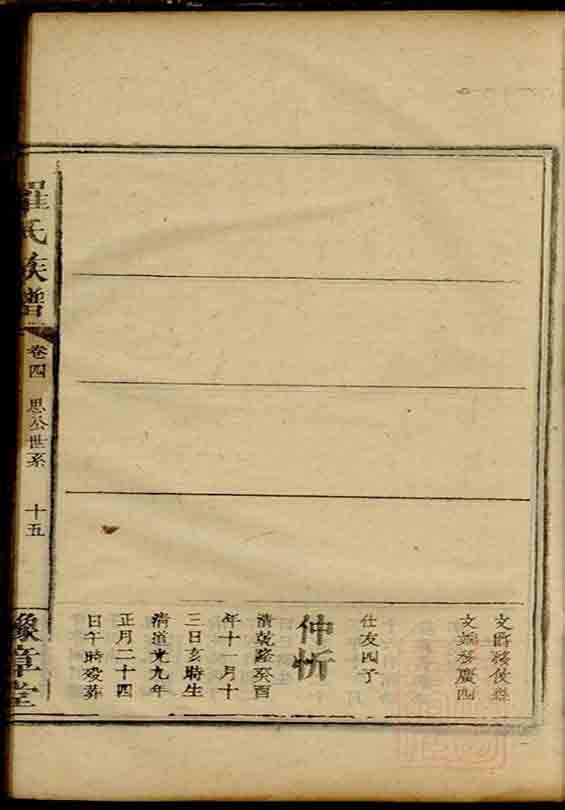 文爵移侯縣
文端移廣四
仕友四子
仲忻
清乾隆癸酉
年十一月十
三日亥時生
清道光九年
正月二十四
日午時歿葬
羅氏族譜
卷四
思公世系
十五
豫章堂